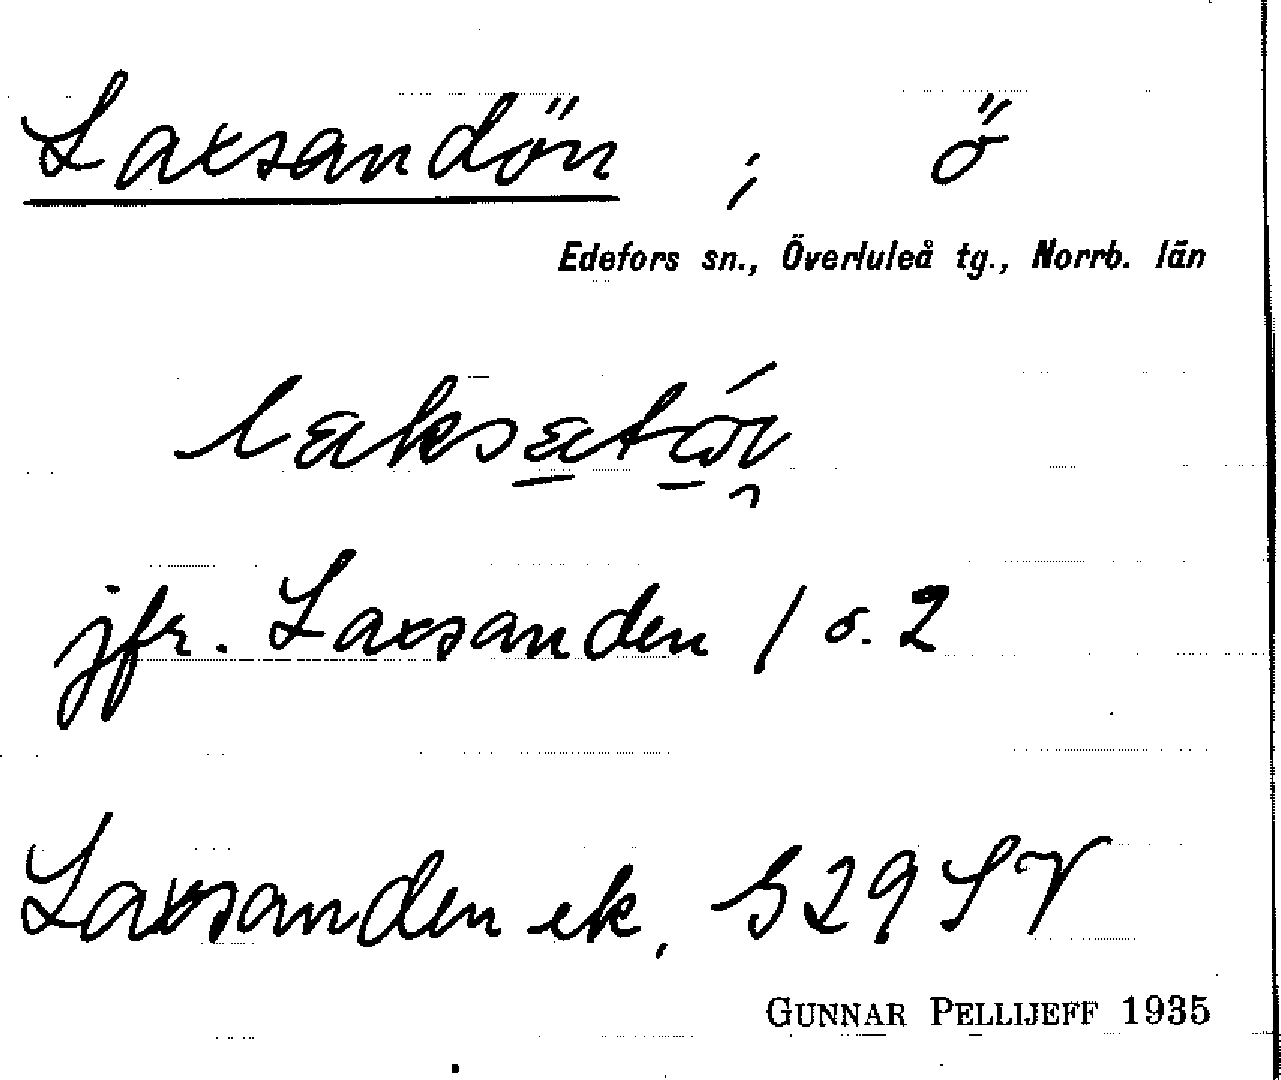 Laxsandön ; ö
Edefors sn., Överluleå tg., Norrb. län
jfr. Laxsanden 1 o. 2
Laxsanden ek, S29SV
GUNNAR PELLIJEFF 1935